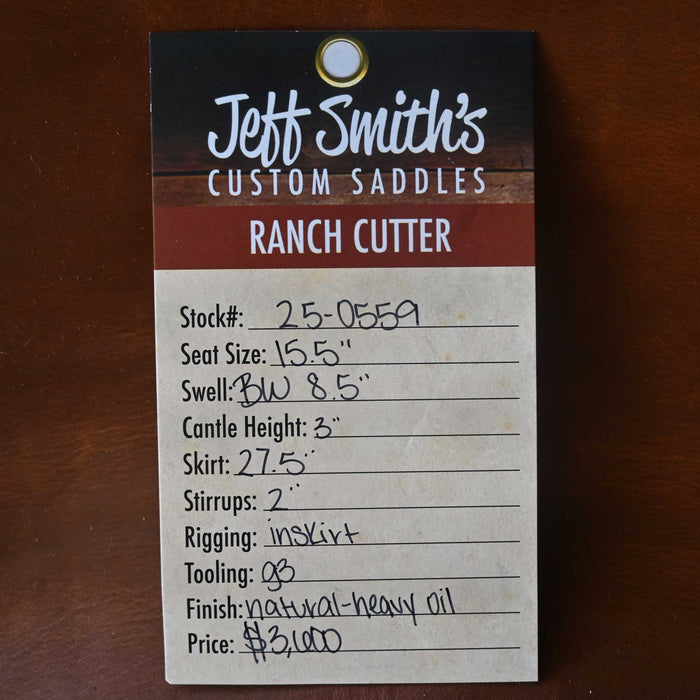 Jeff Smith's
CUSTOM SADDLES
RANCH CUTTER
Stock#: 25-0559
Seat Size: 15.5"
Swell: BW 8.5"
Cantle Height: 3"
Skirt: 27.5"
Stirrups: 2"
Rigging: inskirt
Tooling: g3
Finish: natural-heavy oil
Price: $3,600